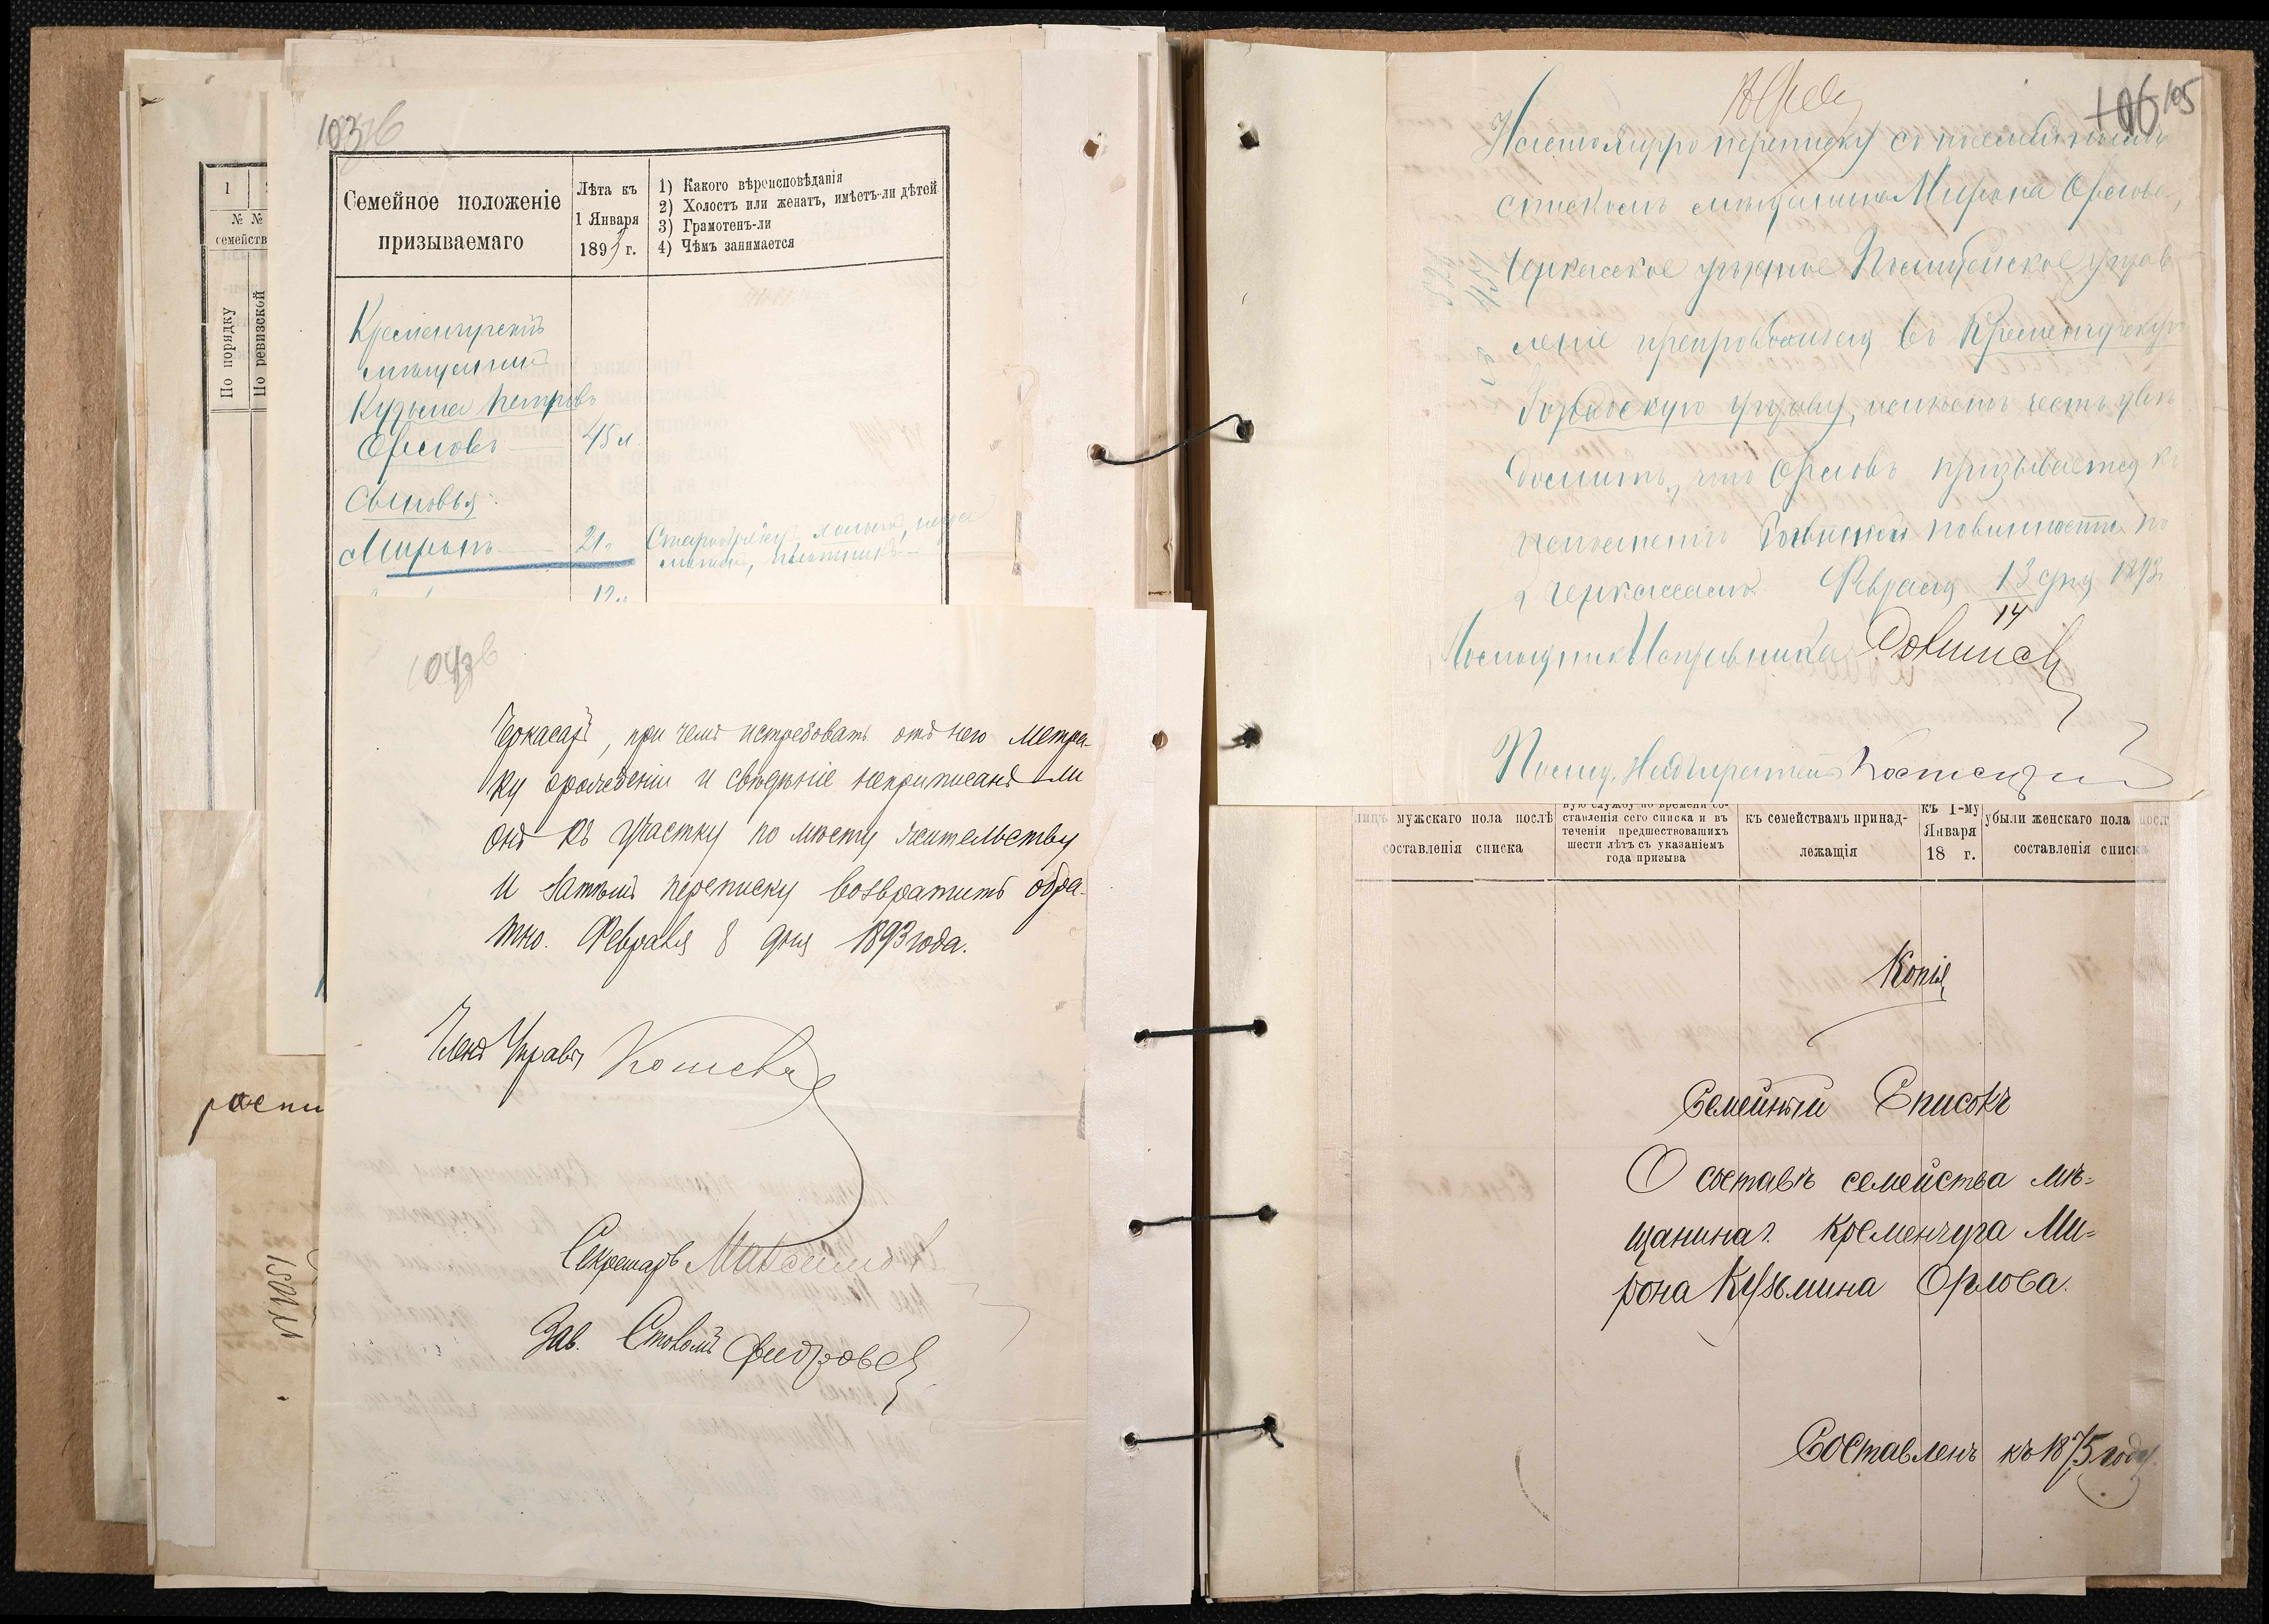 1
№ №
семейств
По порядку
По ревизской
103об
Семейное положеніе
призываемаго
Лѣта къ
1 Января
1893 г.
1) Какого вѣроисповѣданія
2) Холостъ или женатъ, имѣетъ-ли дѣтей
3) Грамотенъ-ли
4) Чѣмъ занимается
Кременчугскій
мѣщанинъ
Кузьма Петровъ
Орловъ 45 л.
Сыновья:
Миронъ 21.
12.
104об
Черкасахъ, при чемъ истребовать отъ него метри-
ку о рожденіи и свѣдѣніе неприписанъ ли
онъ къ участку по мѣсту жительству
и затѣмъ переписку возвратить обра-
тно. Февраля 8 дня 1893 года.
Членъ Управы
Секретарь
Зав. Столомъ
распи
106 105
Настоящую переписку съ посемейнымъ
спискомъ мѣщанина Мирона Орлова,
Черкасское уѣздное Полицейское управ
леніе препровождая въ Кременчугскую
Городскую управу, имѣетъ честь увѣ
домить, что Орловъ призывается къ
исполненію воинской повинности по
г. Черкассамъ. Февраля 13 дня 1893
14
Помощникъ Исправника
Помощ. Надзирателя
лицъ мужскаго пола послѣ
составленія списка
ную службу по времени со-
ставленія сего списка и въ
теченіи предшествовашихъ
шести лѣтъ съ указаніемъ
года призыва
къ семействамъ принад-
лежащія
къ 1-му
Января
18 г.
убыли женскаго пола посл
составленія списка
Копія
Семейный Списокъ
О составѣ семейства мѣ-
щанина г. Кременчуга Ми-
рона Кузьмина Орлова.
Составленъ къ 1875 году.